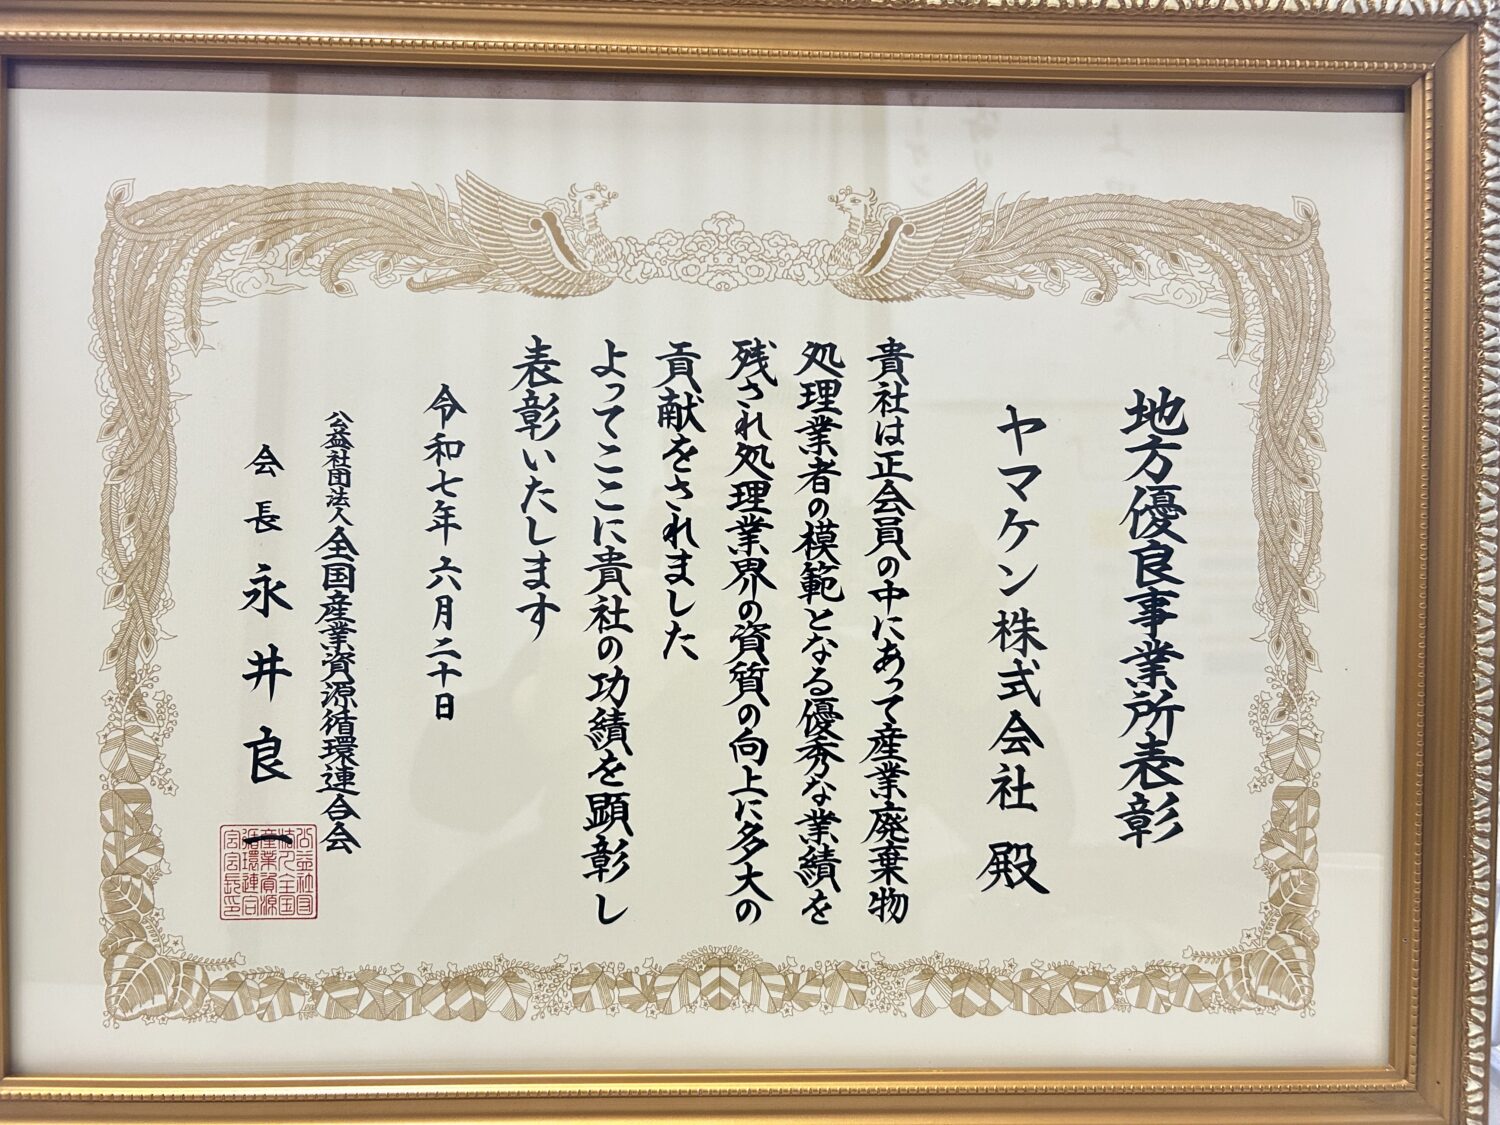 地方優良事業所表彰
ヤマケン株式会社 殿
貴社は正会員の中にあって産業廃棄物
処理業者の模範となる優秀な業績を
残され処理業界の資質の向上に多大の
貢献をされました
よってここに貴社の功績を顕彰し
表彰いたします
令和七年六月二十日
公益社団法人全国産業資源循環連合会
会長 永井良一
公益社団
法人全国
産業資源
循環連合
会会長印